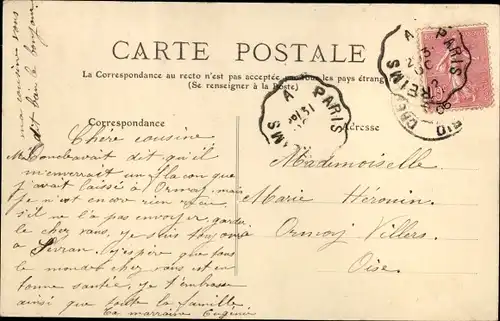 CARTE POSTALE
La Correspondance au recto n'est pas acceptée par tous les pays étrang
(Se renseigner à la Poste)
Correspondance
Adresse
Chère cousine
dit qu'il
m'enverrait un flacon que
j'avait laissée à Ormoy, mais
je n'ai encore rien
s'il ne l'a pas envoyer, garde
le chez vous, je suis toujours
à Sevran. j'espère que tous
le monde chez vous est en
bonne santée, je t'embrasse
ainsi que toute la famille
ta marraine Eugénie
ma cousine vous
dit bien le bonjour
Mademoiselle
Marie Héronin
Ormoy Villers
Oise
A PARIS
REIMS
A PARIS